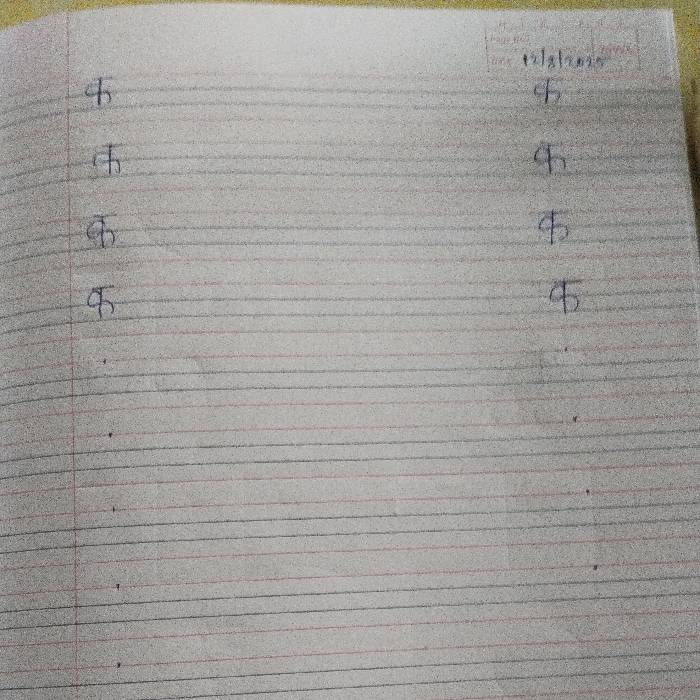 Page No.
Date 12/8/2025
क क
क क
क क
क क